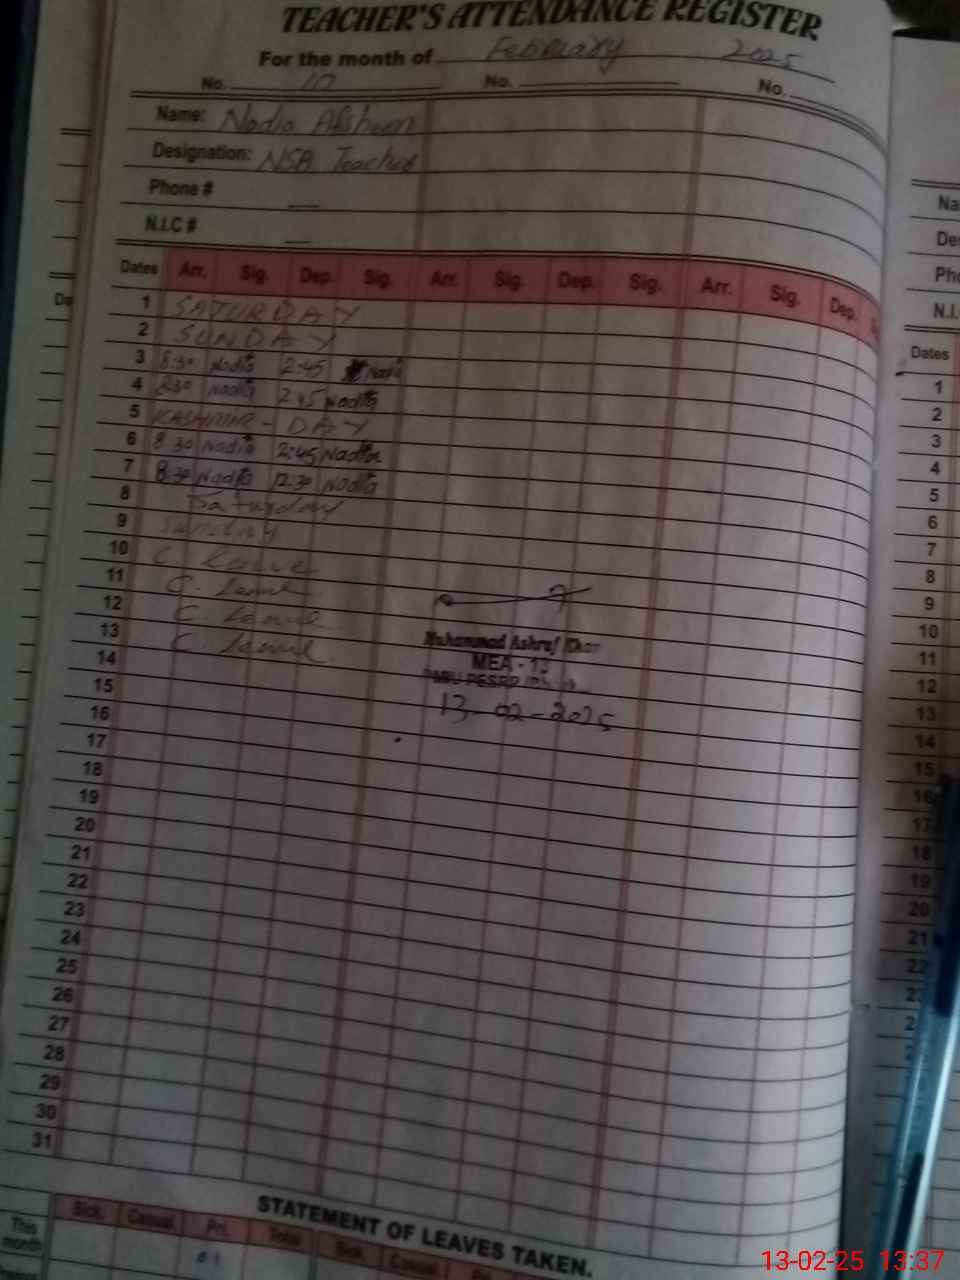 TEACHER'S ATTENDANCE REGISTER
For the month of February 2025
No. 10 No. No.
Name: Nadia Afsheen
Designation: NSB Teacher
Phone # —
N.I.C # —
Dates Arr. Sig. Dep. Sig. Arr. Sig. Dep. Sig. Arr. Sig. Dep.
1 SATURDAY
2 SUNDAY
3 8:30 Nadia 2:45 Nadia
4 8:30 Nadia 2:45 Nadia
5 KASHMIR - DAY
6 8:30 Nadia 2:45 Nadia
7 8:30 Nadia 12:30 Nadia
8 Saturday
9 Sunday
10 C. Leave
11 C. Leave
12 C. Leave
13 C. Leave
14
15
16
17
18
19
20
21
22
23
24
25
26
27
28
29
30
31
Muhammad Ashraf
MEA - 13
PMIU PESRP
13-02-2025
STATEMENT OF LEAVES TAKEN.
Sick. Casual. Pri. Total Sick. Casual.
This month 01
Na
De
Ph
N.I.
Dates
1
2
3
4
5
6
7
8
9
10
11
12
13
14
15
16
17
18
19
20
21
22
13-02-25 13:37